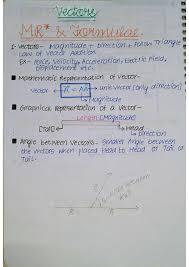 Vectors
MR* & Formulae
1- Vectors- Magnitude + Direction + Follow Triangle
Law of Vector Addition
Ex- Force, Velocity, Acceleration, Electric Field,
Displacement etc.
Mathematical Representation of Vector-
Vector A = AÂ unit vector (only direction)
Magnitude
Graphical Representation of a Vector-
Length (Magnitude)
[Tail] Head
Direction
Angle between Vectors- Smaller Angle between
the vectors when placed Head to Head or Tail to
Tail.
Angle between